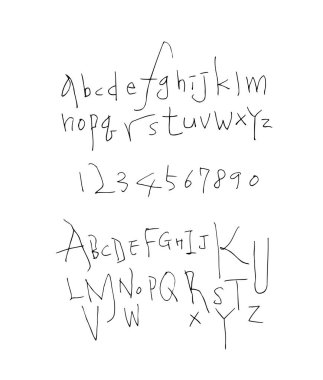 abcdefghijklm
nopqrstuvwxyz
1234567890
ABCDEFGHIJK
LMNOPQRSTU
VWXYZ